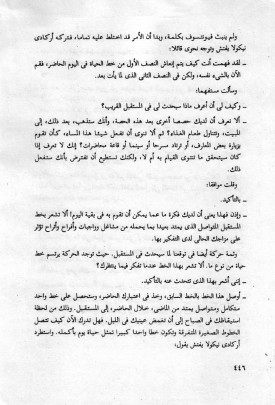 ولم ينبث فيوننسوف بكلمة، وبدا أن الأمر قد اختلط عليه تماما، فتركه أركادى
نيكولا بفتش وتوجه نحوى قائلا:
ـ لقد فهمت أنت كيف يتم إنعاش النصف الأول من خط الحياة فى اليوم الحاضر، فقم
الآن بالشىء نفسه، ولكن فى النصف الثانى الذى لما يأت بعد.
وسألت مستفهما:
ـ وكيف لى أن أعرف ماذا سيحدث لى فى المستقبل القريب؟
ـ ألا تعرف أن لديك حصصا أخرى بعد هذه الحصة، وأنك ستذهب، بعد ذلك، إلى
المبيت، وتتناول طعام الغذاء؟ ثم ألا تنوى أن تفعل شيئا هذا المساء، كأن تقوم
بزيارة بعض المعارف، أو ترتاد مسرحا أو سينما أو قاعة محاضرات؟ إنك لا تعرف إذا
كان سيتحقق ما تنتوى القيام به أم لا، ولكنك تستطيع أن تفترض بأنك ستفعل
ذلك.
وقلت موافقا:
ـ بالتأكيد.
ـ وإذن فهذا يعنى أن لديك فكرة ما عما يمكن أن تقوم به فى بقية اليوم! ألا تشعر بخط
المستقبل المتواصل الذى يمتد بعيدا بما يحمله من مشاغل وواجبات وأفراح وأتراح تؤثر
على مزاجك الحالى لدى التفكير بها.
وثمة حركة أيضا فى توقعنا لما سيحدث فى المستقبل. حيث توجد الحركة يرتسم خط
حياة من نوع ما. ألا تشعر بهذا الخط عندما تفكر فيما ينتظرك؟
ـ إننى أشعر بهذا الذى تتحدث عنه بالتأكيد.
ـ أوصل هذا الخط بالخط السابق، وخذ فى اعتبارك الحاضر، وستحصل على خط واحد
متكامل ومتواصل يمتد من الماضى، خلال الحاضر، إلى المستقبل. وذلك من لحظة
استيقاظك فى الصباح إلى أن تغمض عينيك فى الليل. فهل تدرك الآن كيف تتصل
الخطوط الصغيرة المتفرقة وتكون خطا واحد كبيرا تمثل حياة يوم بأكمله. واستطرد
أركادى نيكولا بفتش يقول،
٤٤٦